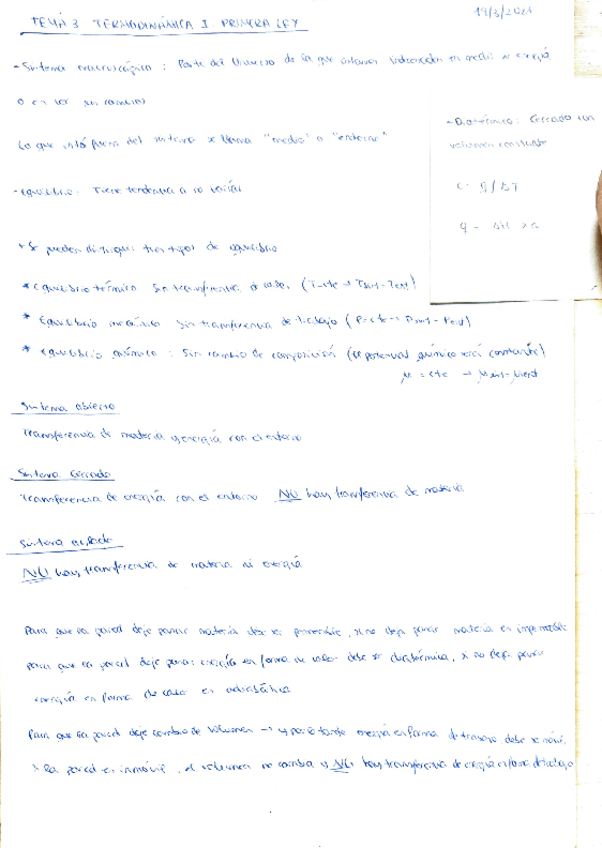 TEMA 3 TERMODINÁMICA I. PRIMERA LEY
19/3/2021
- Sistema macroscópico : Parte del Universo de la que estamos interesados en medir su energía
o en ver sus cambios
Lo que está fuera del sistema se llama "medio" o "entorno"
- Equilibrio : Tiene tendencia a
+ Se pueden distinguir tres tipos de equilibrio
* Equilibrio térmico Sin transferencia de calor (T=cte → Tsist=Tent)
* Equilibrio mecánico Sin transferencia de trabajo (P=cte → Psist=Pent)
* Equilibrio químico : Sin cambio de composición (el potencial químico será constante)
μ = cte → μsist=μent
- Cerrado con
volumen constante
C = q/ΔT
q = ΔH
Sistema abierto
Transferencia de materia y energía con el entorno
Sistema cerrado
Transferencia de energía con el entorno NO hay transferencia de materia
Sistema aislado
NO hay transferencia de materia ni energía
Para que la pared deje pasar materia debe ser permeable, si no deja pasar materia es impermeable
para que la pared deje pasar energía en forma de calor debe ser diatérmica, si no deja pasar
energía en forma de calor es adiabática
Para que la pared deje cambio de volumen → y por lo tanto energía en forma de trabajo debe ser móvil.
Si la pared es inmóvil, el volumen no cambia y NO hay transferencia de energía en forma de trabajo